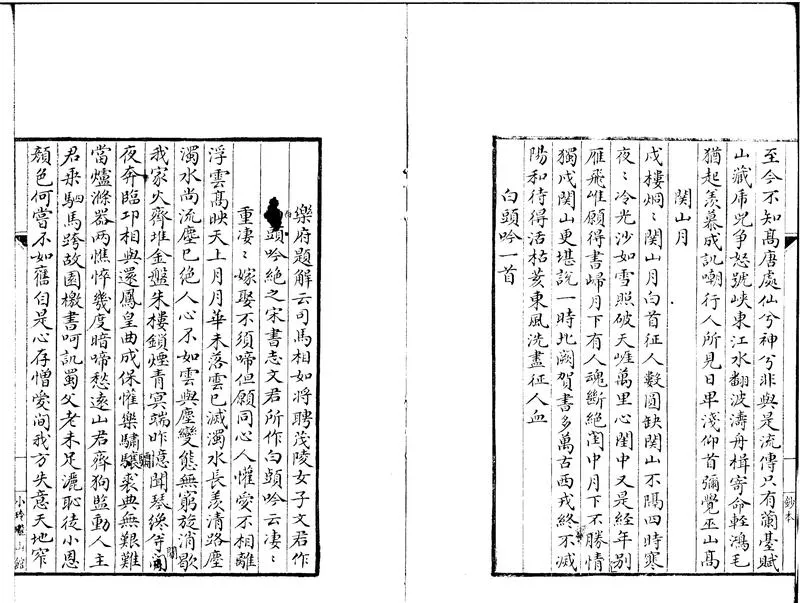 至今不知髙唐處仙兮神兮非與是流傳只有蘭臺賦
山藏虎兕爭怒號峽東江水翻波濤舟楫寄命輕鴻毛
猶起羨慕成訕嘲行人所見日卑淺仰首彌覺巫山髙
関山月
戍樓烱〻関山月白首征人數圓缺関山不隔四時寒
夜〻冷光沙如雪照破天涯萬里心閨中又是經年別
雁飛願得書歸月下有人魂斷絶閨中月下不勝情
獨戍関山更堪說一時北闕賀書多萬古西戎終不滅
陽和待得活枯荄東風洗盡征人血
白頭吟一首
鈔本
樂府題解云司馬相如将聘茂陵女子文君作
白頭吟絶之宋書志文君所作白頭吟云凄〻
重凄〻嫁娶不須啼但願同心人懽愛不相離
浮雲髙映天上月月華未落雲已滅濁水長羨清路塵
濁水尚流塵已絶人心不如雲與塵變態無窮旋消歇
我家火齊堆金盤朱樓鎖煙青冥端昨憶聞琴緣等閒
夜奔臨邛相與還鳳皇曲成保懽樂驌驦裘典無艱難
當爐滌器兩憔悴幾度暗啼愁遠山君齊狗監動人主
君乘駟馬跨故園檄書呵訊蜀父老未足灑恥徒小恩
顔色何嘗不如舊自是心存憎愛間我方失意天地窄
小玲瓏山館